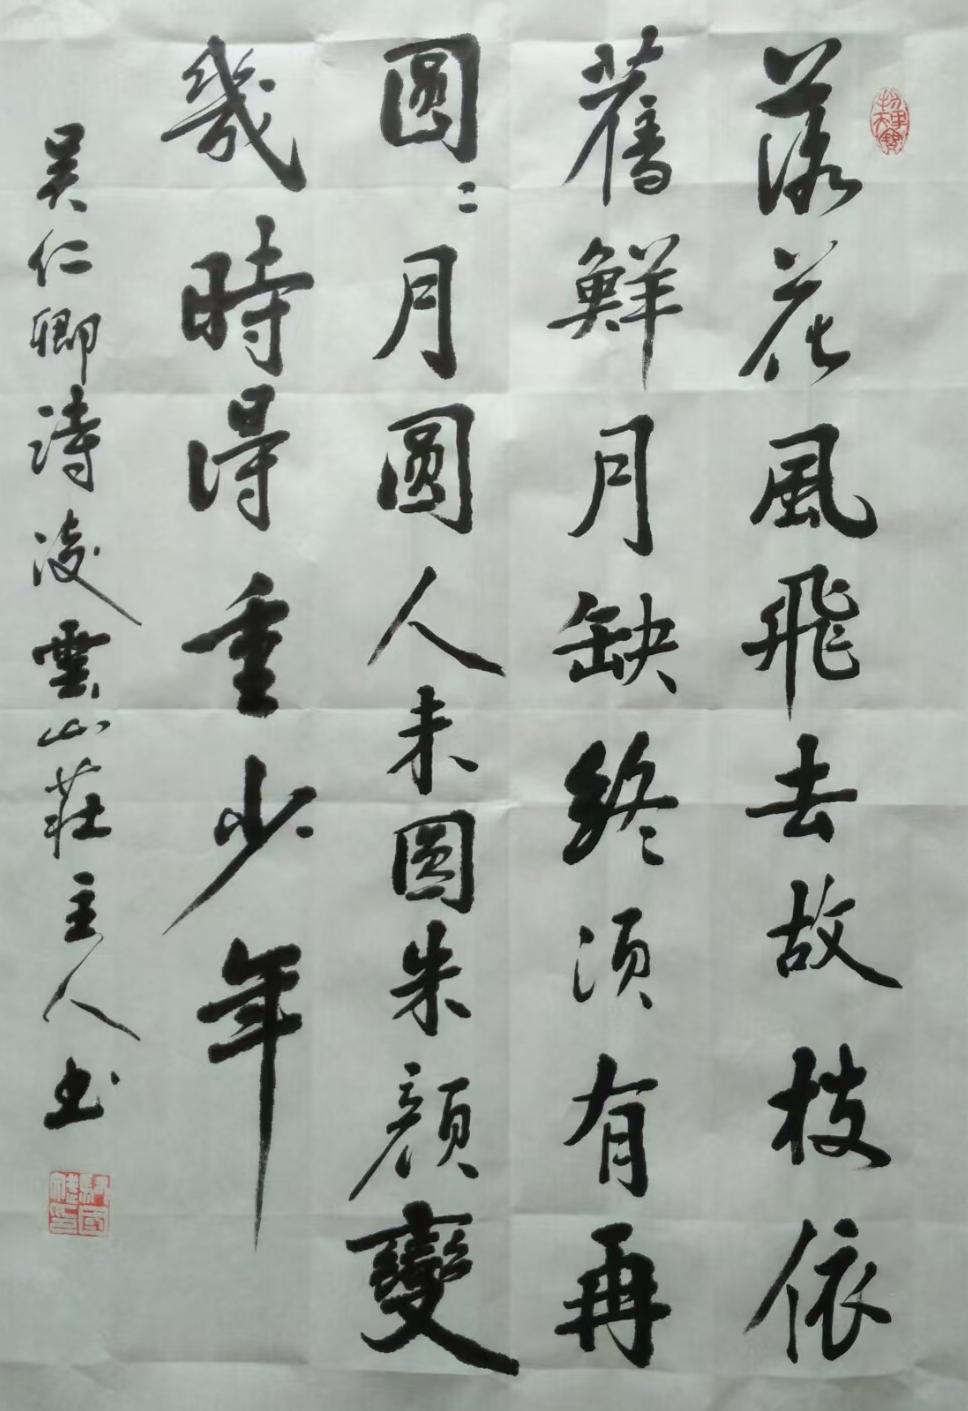 落花風飛去故枝依
舊鮮月缺終须有再
圓〻月圓人未圓朱顔變
幾時得重少年
吴仁卿詩凌雲山莊主人书